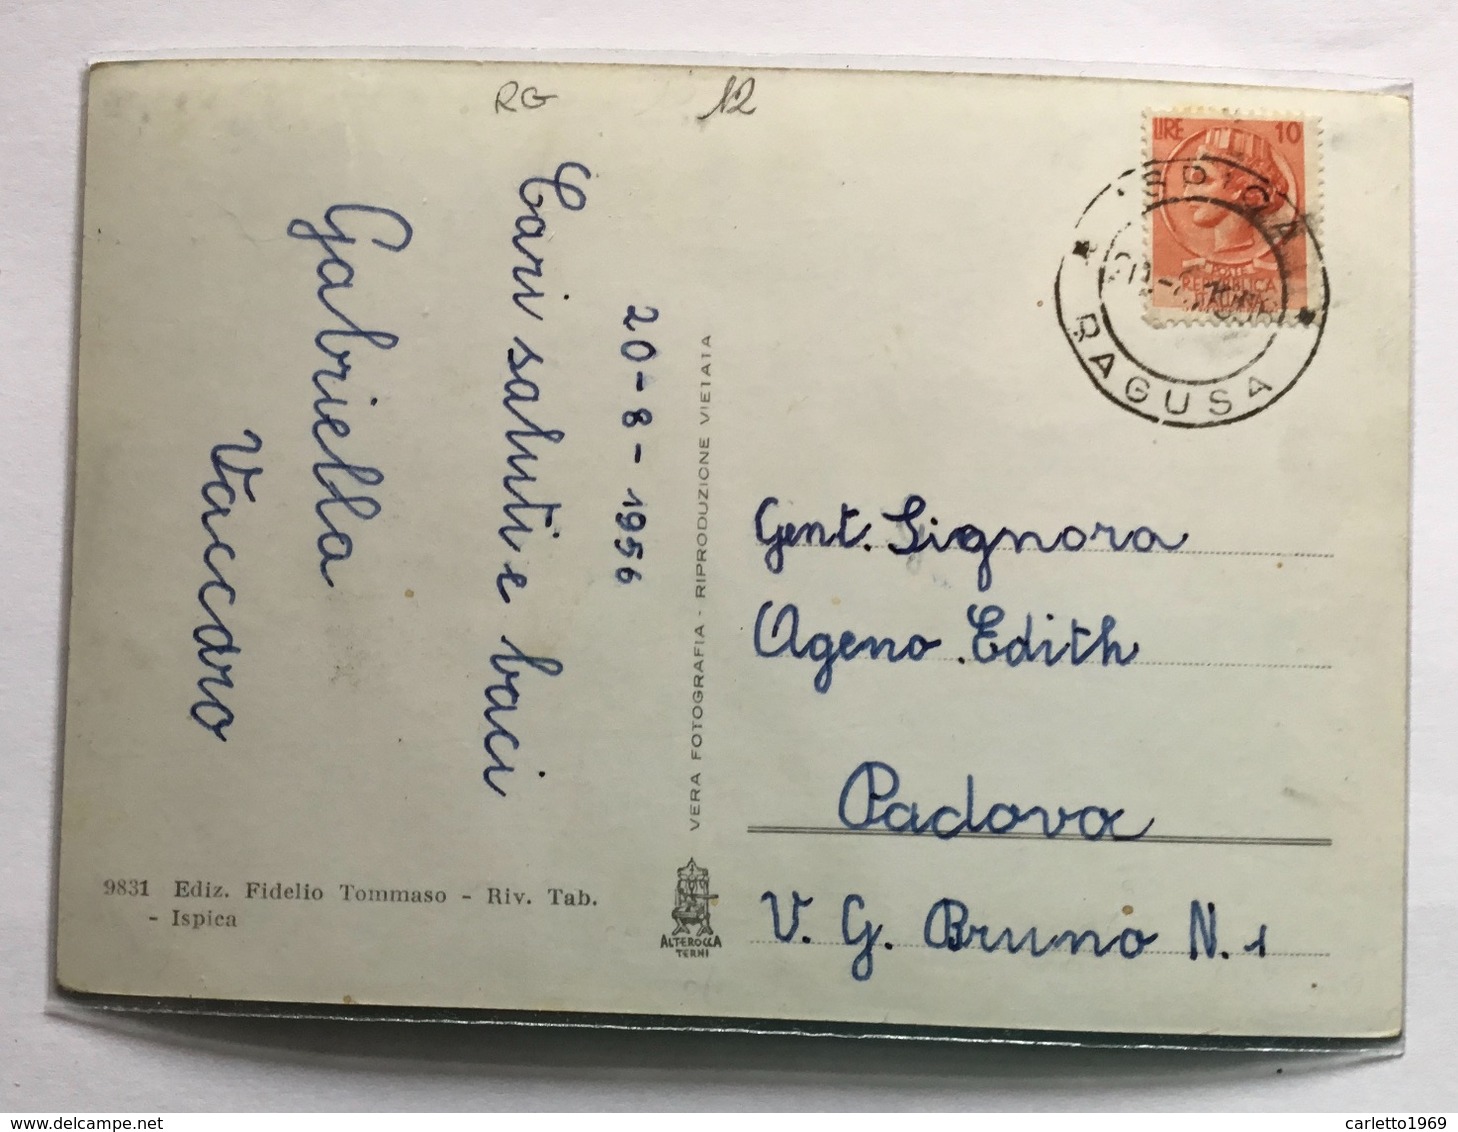 RG
12
LIRE 10
POSTE
REPUBBLICA
ITALIANA
ISPICA
RAGUSA
20-8-1956
Cari saluti e baci
Gabriella
Vaccaro
VERA FOTOGRAFIA - RIPRODUZIONE VIETATA
Gent. Signora
Ageno Edith
Padova
V. G. Bruno N. 1
9831 Ediz. Fidelio Tommaso - Riv. Tab.
- Ispica
ALTEROCCA
TERNI
delcampe.net
carletto1969